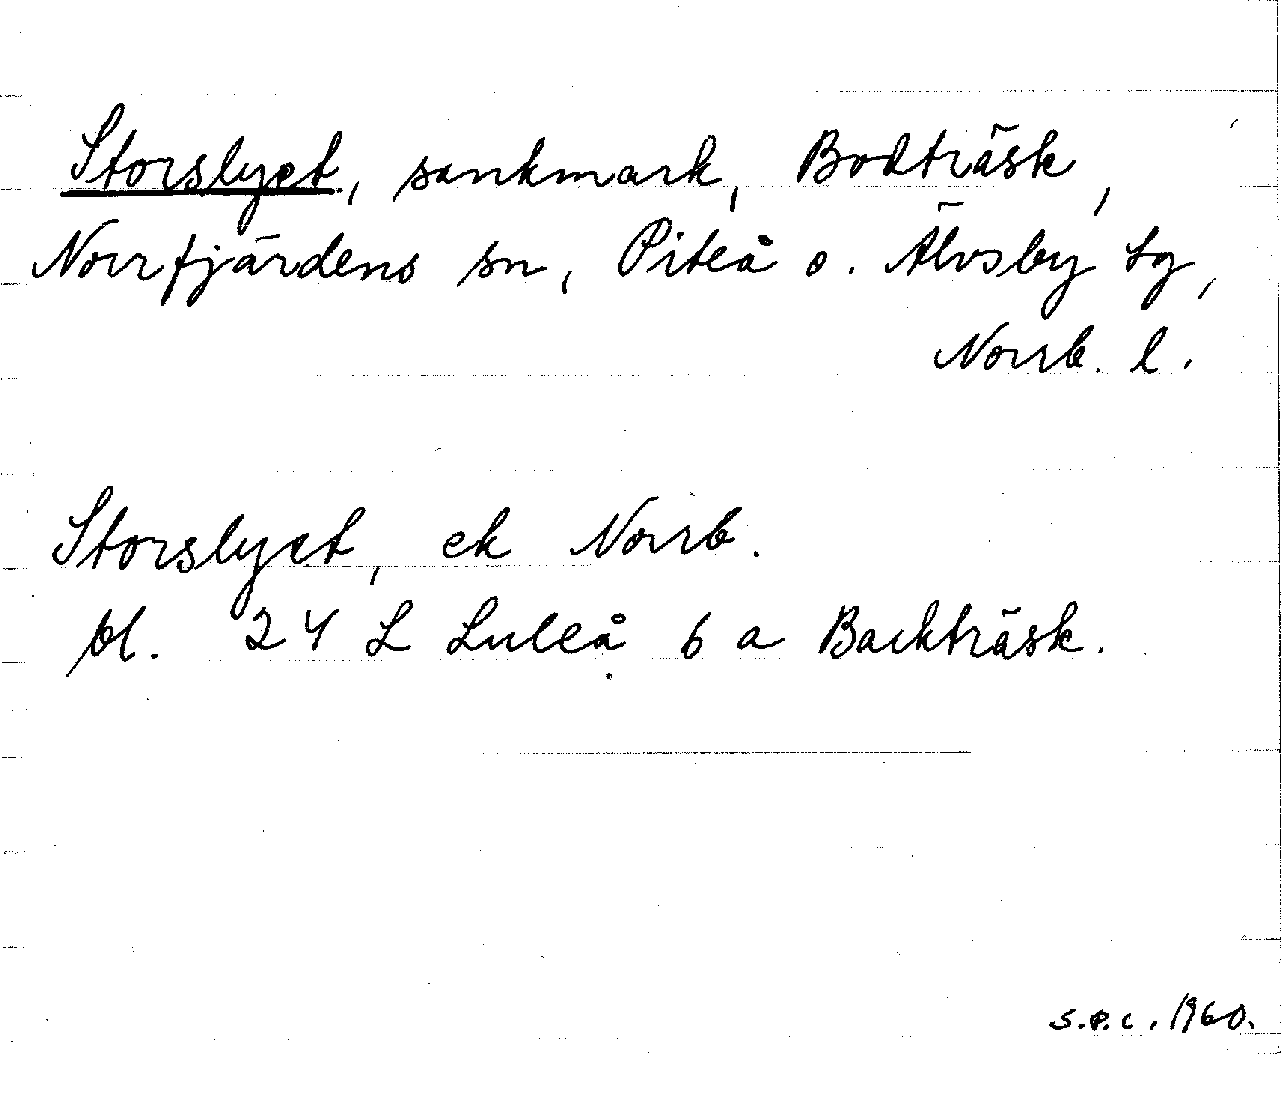 Storslyet, sankmark, Bodträsk,
Norrfjärdens sn, Piteå o. Älvsby tg,
Norrb. l.
Storslyet, ek Norrb.
bl. 24 L Luleå 6 a Backträsk.
S.O.C. 1960.